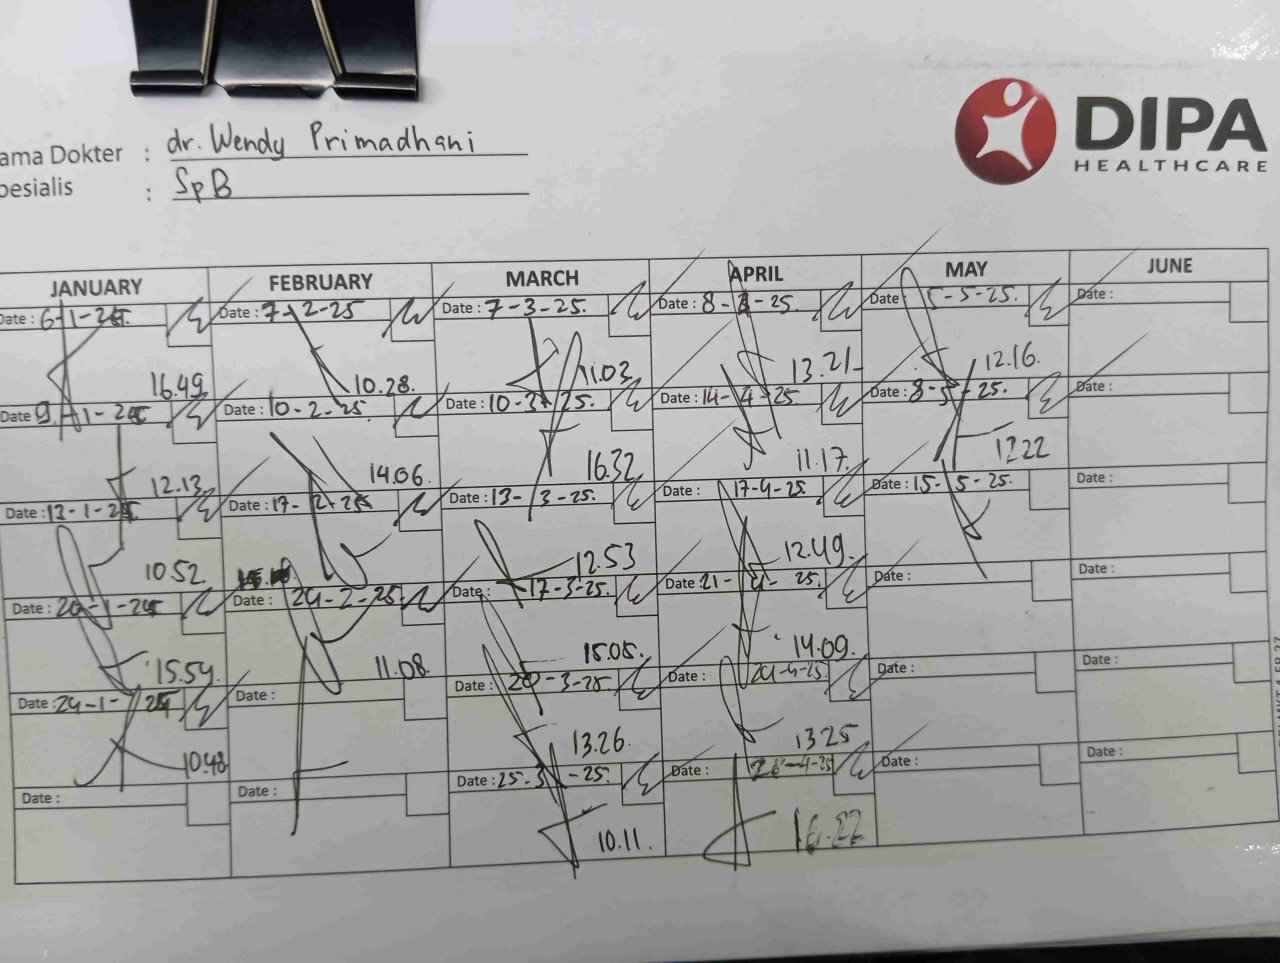 DIPA
HEALTHCARE
ama Dokter : dr. Wendy Primadhani
pesialis : SpB
JANUARY FEBRUARY MARCH APRIL MAY JUNE
Date: 6-1-25. Date: 7-2-25 Date: 7-3-25. Date: 8-4-25. Date: 5-5-25. Date:
16.49 10.28. 11.03 13.21 12.16.
Date 9-1-25 Date: 10-2-25 Date: 10-3-25. Date: 14-4-25 Date: 8-5-25. Date:
12.13 14.06. 16.32 11.17. 12.22
Date: 13-1-25 Date: 17-2-25 Date: 13-3-25. Date: 17-4-25 Date: 15-5-25. Date:
10.52 12.53 12.49.
Date: 20-1-25 Date: 24-2-25 Date: 17-3-25. Date: 21-4-25. Date: Date:
15.54. 11.08. 15.05. 14.09.
Date: 24-1-25 Date: Date: 20-3-25. Date: 24-4-25. Date: Date:
10.48 13.26. 13.25
Date: Date: Date: 25-3-25. Date: 28-4-25 Date: Date:
10.11. 16.22